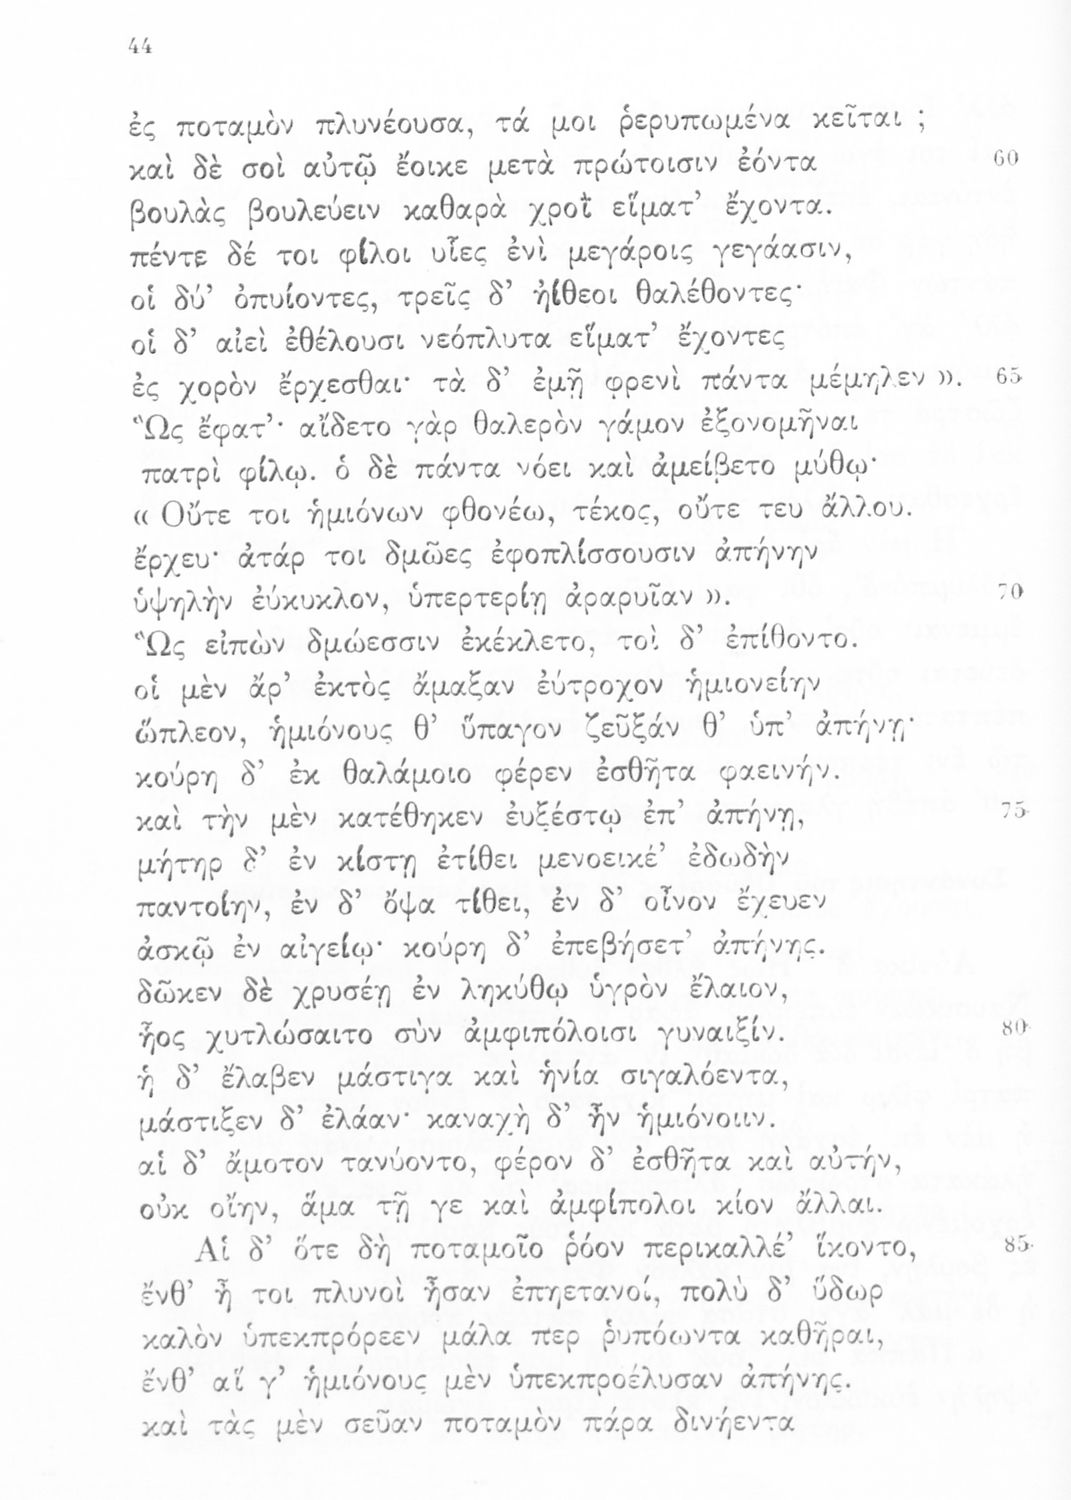 44
ἐς ποταμὸν πλυνέουσα, τά μοι ῥερυπωμένα κεῖται ;
καὶ δὲ σοὶ αὐτῷ ἔοικε μετὰ πρώτοισιν ἐόντα 60
βουλὰς βουλεύειν καθαρὰ χροῒ εἵματ’ ἔχοντα.
πέντε δέ τοι φίλοι υἷες ἐνὶ μεγάροις γεγάασιν,
οἱ δύ’ ὀπυίοντες, τρεῖς δ’ ἠίθεοι θαλέθοντες·
οἱ δ’ αἰεὶ ἐθέλουσι νεόπλυτα εἵματ’ ἔχοντες
ἐς χορὸν ἔρχεσθαι· τὰ δ’ ἐμῇ φρενὶ πάντα μέμηλεν ». 65
Ὣς ἔφατ’· αἴδετο γὰρ θαλερὸν γάμον ἐξονομῆναι
πατρὶ φίλῳ. ὁ δὲ πάντα νόει καὶ ἀμείβετο μύθῳ·
« Οὔτε τοι ἡμιόνων φθονέω, τέκος, οὔτε τευ ἄλλου.
ἔρχευ· ἀτάρ τοι δμῶες ἐφοπλίσσουσιν ἀπήνην
ὑψηλὴν ἐύκυκλον, ὑπερτερίῃ ἀραρυῖαν ». 70
Ὣς εἰπὼν δμώεσσιν ἐκέκλετο, τοὶ δ’ ἐπίθοντο.
οἱ μὲν ἄρ’ ἐκτὸς ἄμαξαν ἐύτροχον ἡμιονείην
ὥπλεον, ἡμιόνους θ’ ὕπαγον ζεῦξάν θ’ ὑπ’ ἀπήνῃ·
κούρη δ’ ἐκ θαλάμοιο φέρεν ἐσθῆτα φαεινήν.
καὶ τὴν μὲν κατέθηκεν ἐυξέστῳ ἐπ’ ἀπήνῃ, 75
μήτηρ δ’ ἐν κίστῃ ἐτίθει μενοεικέ’ ἐδωδὴν
παντοίην, ἐν δ’ ὄψα τίθει, ἐν δ’ οἶνον ἔχευεν
ἀσκῷ ἐν αἰγείῳ· κούρη δ’ ἐπεβήσετ’ ἀπήνης.
δῶκεν δὲ χρυσέῃ ἐν ληκύθῳ ὑγρὸν ἔλαιον,
ἧος χυτλώσαιτο σὺν ἀμφιπόλοισι γυναιξίν. 80
ἡ δ’ ἔλαβεν μάστιγα καὶ ἡνία σιγαλόεντα,
μάστιξεν δ’ ἐλάαν· καναχὴ δ’ ἦν ἡμιόνοιιν.
αἱ δ’ ἄμοτον τανύοντο, φέρον δ’ ἐσθῆτα καὶ αὐτήν,
οὐκ οἴην, ἅμα τῇ γε καὶ ἀμφίπολοι κίον ἄλλαι.
Αἱ δ’ ὅτε δὴ ποταμοῖο ῥόον περικαλλέ’ ἵκοντο, 85
ἔνθ’ ἦ τοι πλυνοὶ ἦσαν ἐπηετανοί, πολὺ δ’ ὕδωρ
καλὸν ὑπεκπρόρεεν μάλα περ ῥυπόωντα καθῆραι,
ἔνθ’ αἵ γ’ ἡμιόνους μὲν ὑπεκπροέλυσαν ἀπήνης.
καὶ τὰς μὲν σεῦαν ποταμὸν πάρα δινήεντα